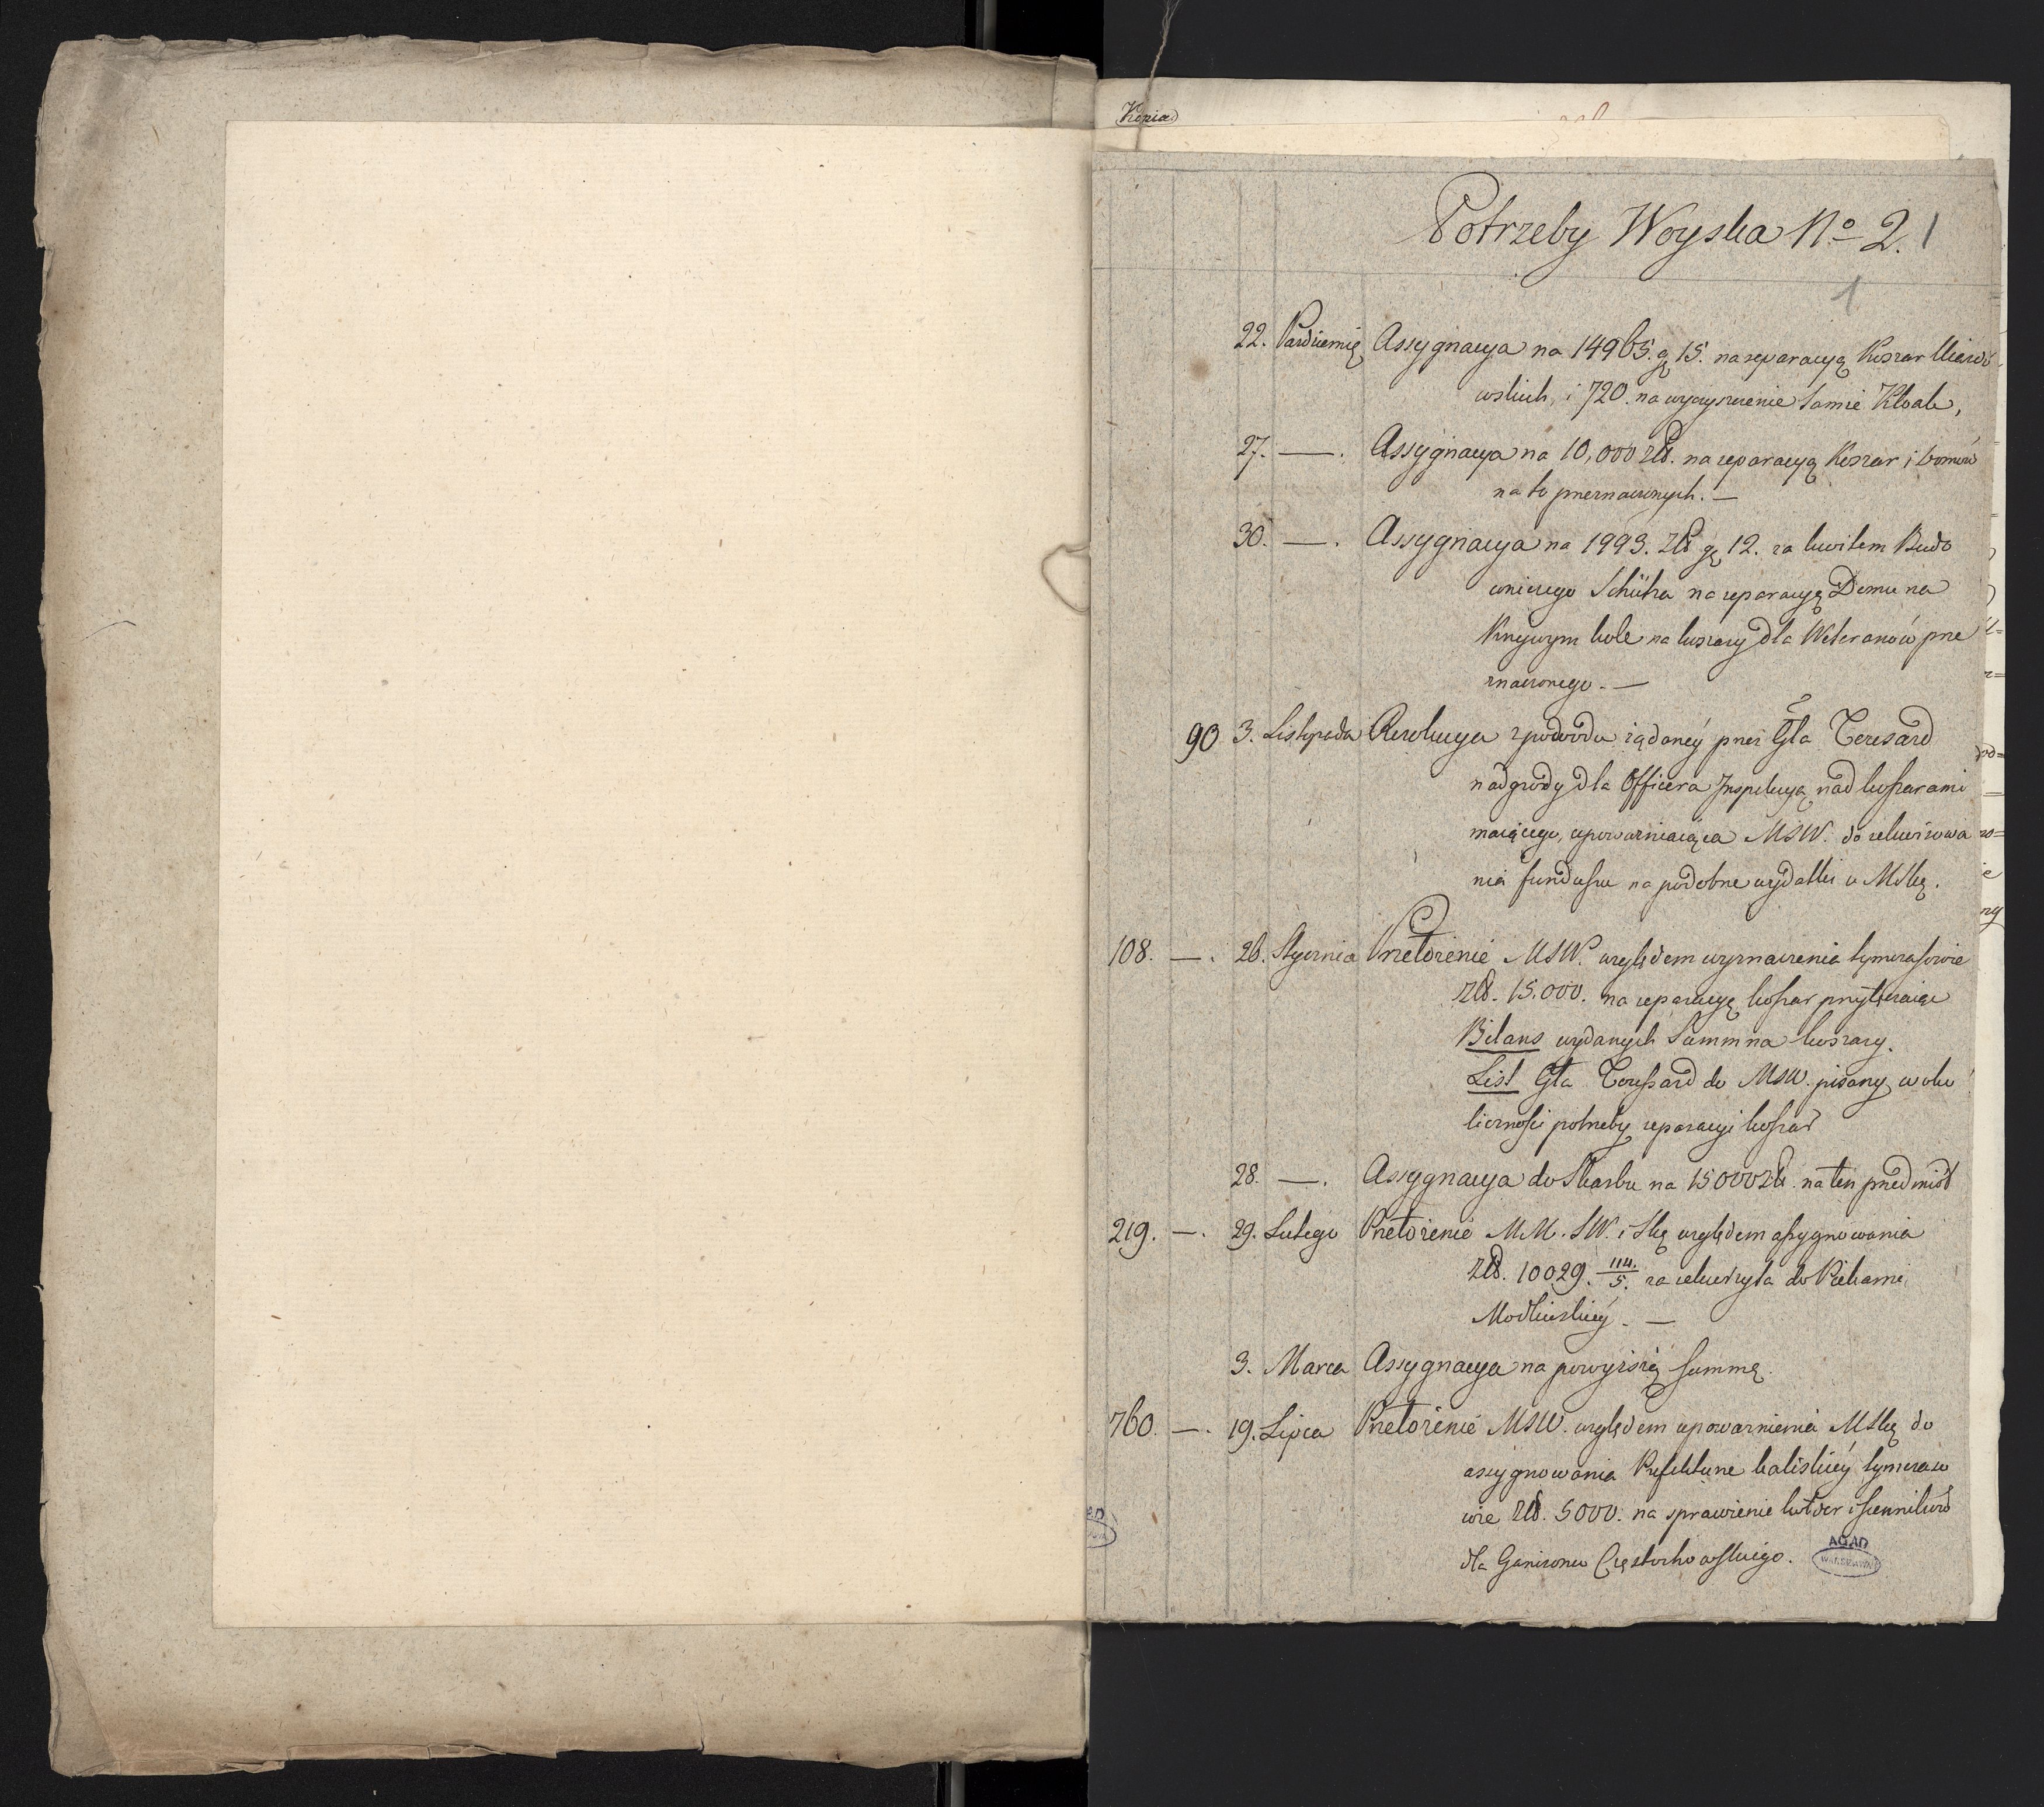 Kopia
Potrzeby Woyska No 2. 1
1
22. Październię Assygnacya na 14965. g 15. na reparacyą Koszar Uiazdo
wskich, i 720. na wyczyszczenie tamże Kloak,
27. —. Assygnacya na 10,000 złł. na reparacyą Koszar i domów
na to przeznaczonych. —
30. —. Assygnacya na 1993. złł gę 12. za kwitem Budo
wniczego Schütza na reparacyę Domu na
Krzywym kole na koszary dla Weteranów prze
znaczonego. —
90 3. Listopada Rezolucya zpowodu żądaney przez Gła
nadgrody dla Officera Inspekcyą nad koszarami
maiącego, upoważniaiąca MSW. do rekwirowa
nia funduszu na podobne wydatki u MSkę.
108. —. 26. Stycznia Przełożenie MSW. względem wyznaczenia tymczasowie
złł. 15.000. na reparacyę koszar przytaczaiąc
Bilans wydanych Summ na koszary.
List Gła do MSW. pisany w oko
liczności potrzeby reparacyi koszar
28. —. Assygnacya do Skarbu na 15000 złł. na ten przedmiot
219. —. 29. Lutego Przełożenie MM. SW. i Skę względem assygnowania
złł. 10029. 114./5. za rekwizyta do Piekarni
Modlińskiéy. —
3. Marca Assygnacya na powyższą summę.
760. —. 19. Lipca Przełożenie MSW. względem upoważnienia MSkę do
assygnowania Prefekturze kaliskiéy tymczaso
wie złł. 5000. na sprawienie kołder i sienników
dla Garnizonu Częstochowskiego.
AGAD
WARSZAWA